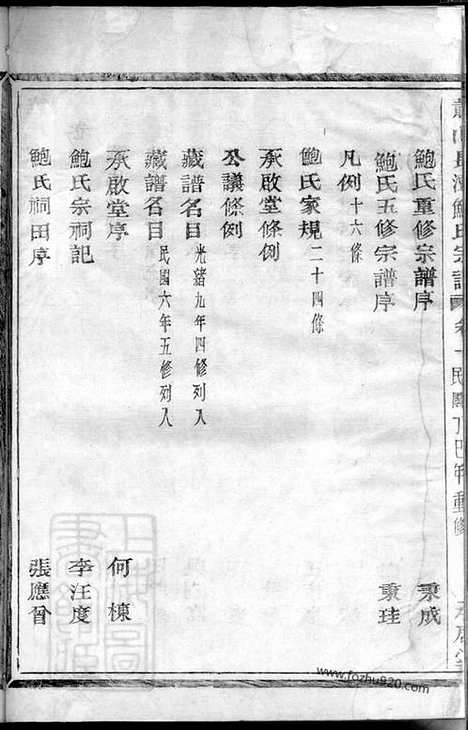 蕭山長潭鮑氏宗譜 卷一 民國丁巳年重修 承啟堂
鮑氏重修宗譜序 秉成
鮑氏五修宗譜序 秉珪
凡例十六條
鮑氏家規二十四條
承啟堂條例
公議條例
藏譜名目光緒九年四修列入
藏譜名目民國六年五修列入
承啟堂序 何棟
鮑氏宗祠記 李汪度
鮑氏祠田序 張應曾
www.fozhu920.com